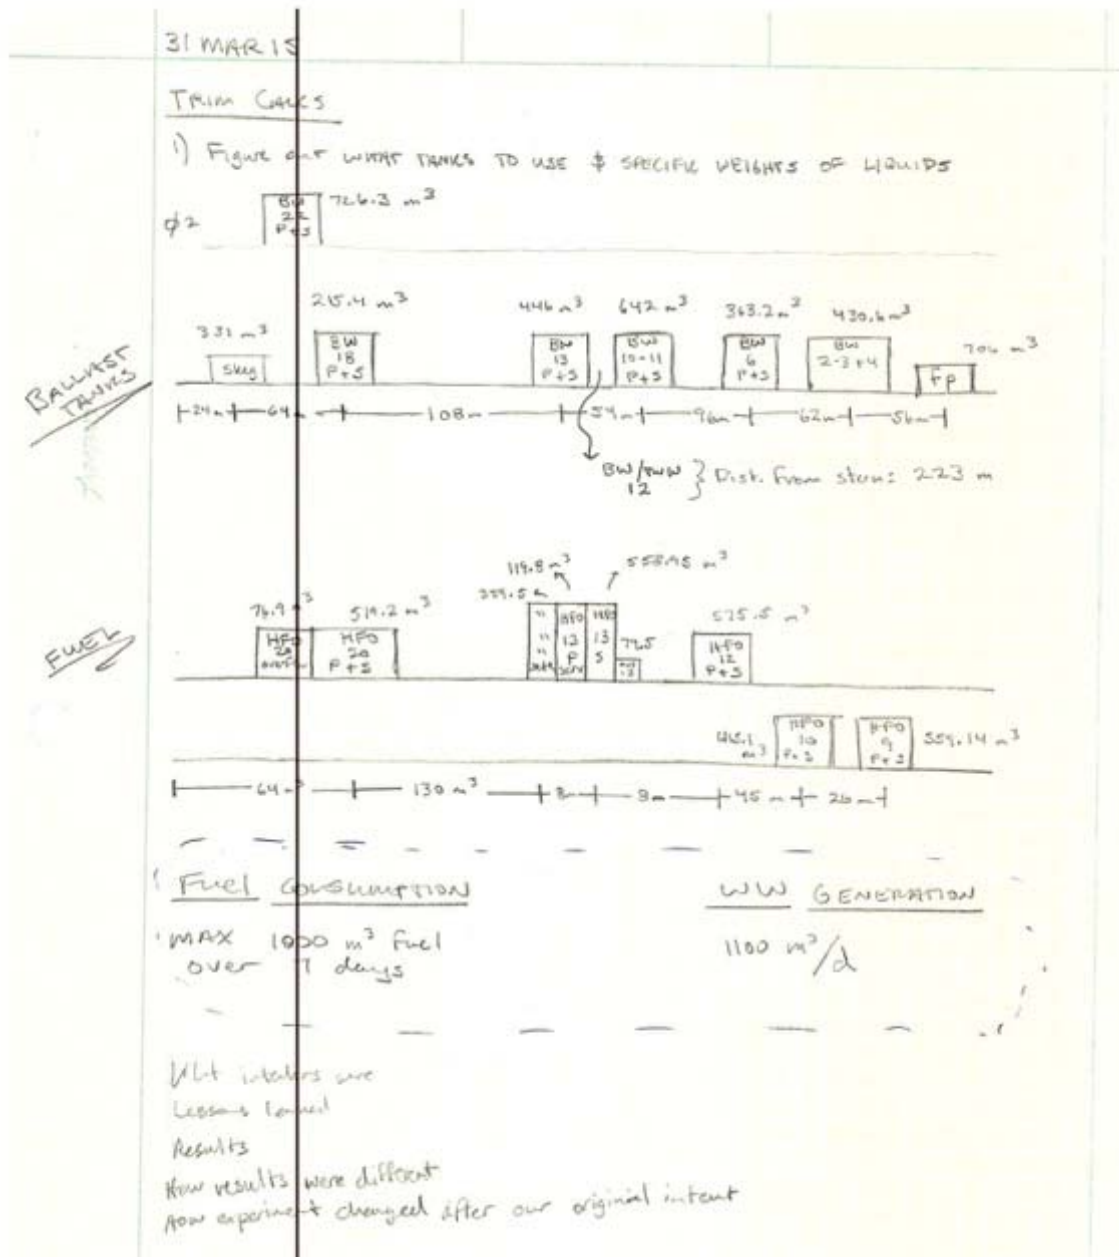 31 MAR 15
TRIM CALCS
1) Figure out WHAT TANKS TO USE & SPECIFIC WEIGHTS OF LIQUIDS
φ2
BW 22 P+S
726.3 m³
BALLAST TANKS
331 m³
215.4 m³
446 m³
642 m³
363.2 m³
430.6 m³
706 m³
Skeg
BW 18 P+S
BW 13 P+S
BW 10-11 P+S
BW 6 P+S
BW 2-3+4
FP
24m 64m 108m 54m 96m 62m 56m
BW/ 12 } Dist. from stern: 223 m
FUEL
119.8 m³
76.9 m³
519.2 m³
525.5 m³
HFO 20
HFO 20 P+S
HFO 13 P
HFO 13 S
HFO 12 P+S
HFO 10 P+S
HFO 9 P+S
559.14 m³
64 m³ 130 m³ 8m 9m 45m 26m
Fuel CONSUMPTION
WW GENERATION
MAX 1000 m³ Fuel
over 7 days
1100 m³/d
Lessons learned
Results
How results were different
How experiment changed after our original intent